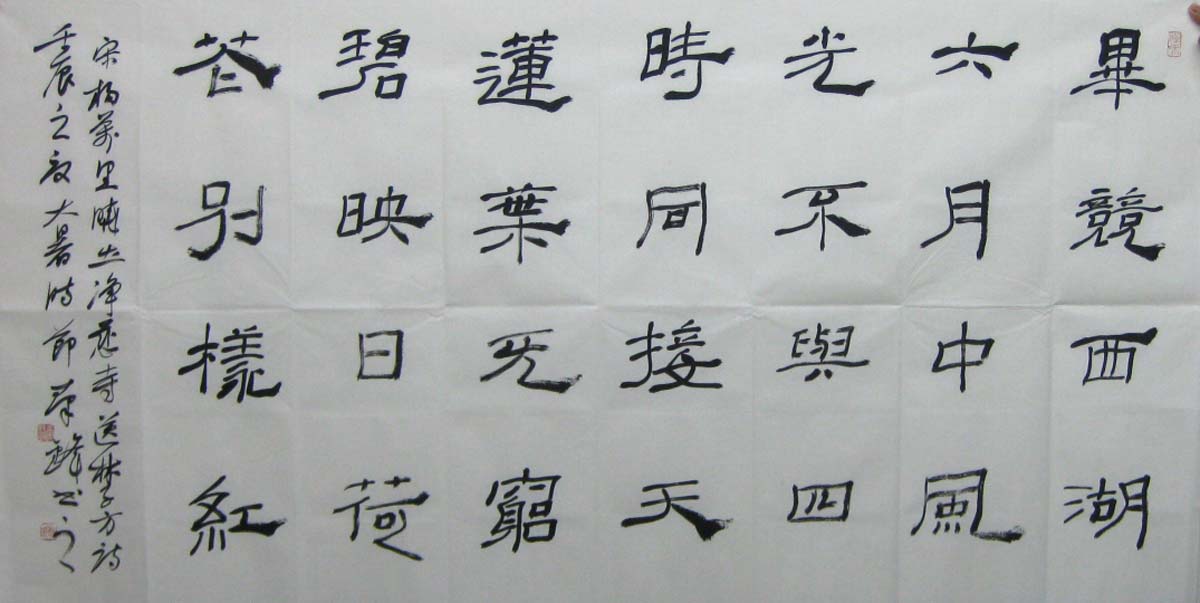 畢競西湖
六月中風
光不與四
時同接天
蓮葉无窮
碧映日荷
花別樣紅
宋杨萬里曉出净慈寺送林子方诗
壬辰之夏大暑时節书之